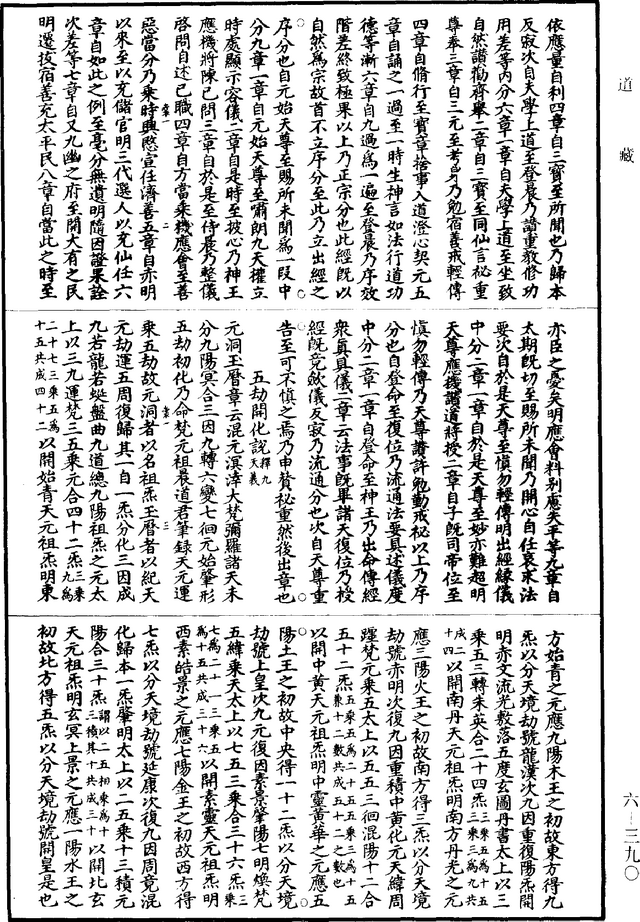 道藏
依應量自利四章自三寶至所聞也乃歸本
反寂次自夫學上道至登晨乃諧重教修功
用差等內分六章一章自夫學上道至坐致
自然讚勸齊舉二章自三寶至同仙言祕重
尊奉三章自三元至考身乃勉宿善戒輕傳
四章自脩行至寶章捨事入道澄心契元五
章自誦之一過至一時生神言如法行道功
德等漸六章自九過爲一遍至登晨乃序效
階差終致極果以上乃正宗分也此經既以
自然爲宗故首不立序分至此乃立出經之
序分也自元始天尊至賜所未聞爲一段中
分九章一章自元始天尊至嘯朗九天攉立
時處顯示容儀二章自是時至披心乃神王
應機將陳已問三章自於是至侍晨乃整儀
啓問自述已職四章自方當乘機應會至善
惡當分乃乘時興愍宣任濟善五章自亦明
以來至以充儲官明三代選人以充仙任六
章自如此之例至毫分無遺明隨因證果詮
次差等七章自又九幽之府至開大有之民
明遷拔宿善充太平民八章自當此之時至
亦臣之憂矣明應會料别慮失平等九章自
太期既切至賜所未聞乃開心自任哀求法
要次自於是天尊至慎勿輕傳明出經緣儀
中分二章一章自於是天尊至妙亦難超明
天尊應機諧道將授二章自子既司帝位至
慎勿輕傳乃天尊讚許勉勤戒祕以上乃序
分也自登命至復位乃流通法要具述儀度
中分二章一章自登命至神王乃出命傳經
衆真具儀二章云法事既畢諸天復位乃授
經既竟斂儀反寂乃流通分也次自天尊重
告至可不慎之焉乃申贊祕重然後出章也
五劫開化說釋九天義
元洞玉曆章云混元溟涬大梵彌羅諸天未
分九陽冥合三因九轉六變七徊元始肇形
五劫初化乃命梵元祖晨道君筆録天元運
乘五劫故元洞者以名祖炁王曆者以紀天
元劫運五周復歸其一自一炁分化三因成
九若龍若蜒盤曲九道總九陽祖炁之元太
上以三九運梵三五乘元合四十二炁三乘九爲
二十七三乘五爲十五共成四十二以開始青天元祖炁明東
方始青之元應九陽木王之初故東方得九
炁以分天境劫號龍漢次九因重復陽炁開
明赤文流光敷落五度玄圖丹書太上以三
乘五三轉朱英合二十四炁三乘五爲十五三乘三爲九共
成二十四以開南丹天元祖炁明南方丹光之元
應三陽火王之初故南方得三炁以分天境
劫號赤明次復九因重積中黄化元天緯周
躔梵元乘五太上以五五三徊混陽十二合
五十二炁五乘五爲二十五五乘三爲十五兼十二數共成五十二之數也
以開中黄天元祖炁明中靈黄華之元應五
陽土王之初故中央得一十二炁以分天境
劫號上皇次九元復因素景肇陽七明煥梵
五緯乘天太上以七五三乘合三十六炁三乘
七爲二十一三乘五爲十五共成三十六以開素靈天元祖炁明
西素皓景之元應七陽金王之初故西方得
七炁以分天境劫號延康次復九因周竟混
化歸本一炁肇明太上以二五乘十三積元
陽合三十炁謂以二五初乘爲十以三積其十共成三十以開北玄
天元祖炁明玄冥上景之元應一陽水王之
初故北方得五炁以分天境劫號開皇是也
六-三九〇